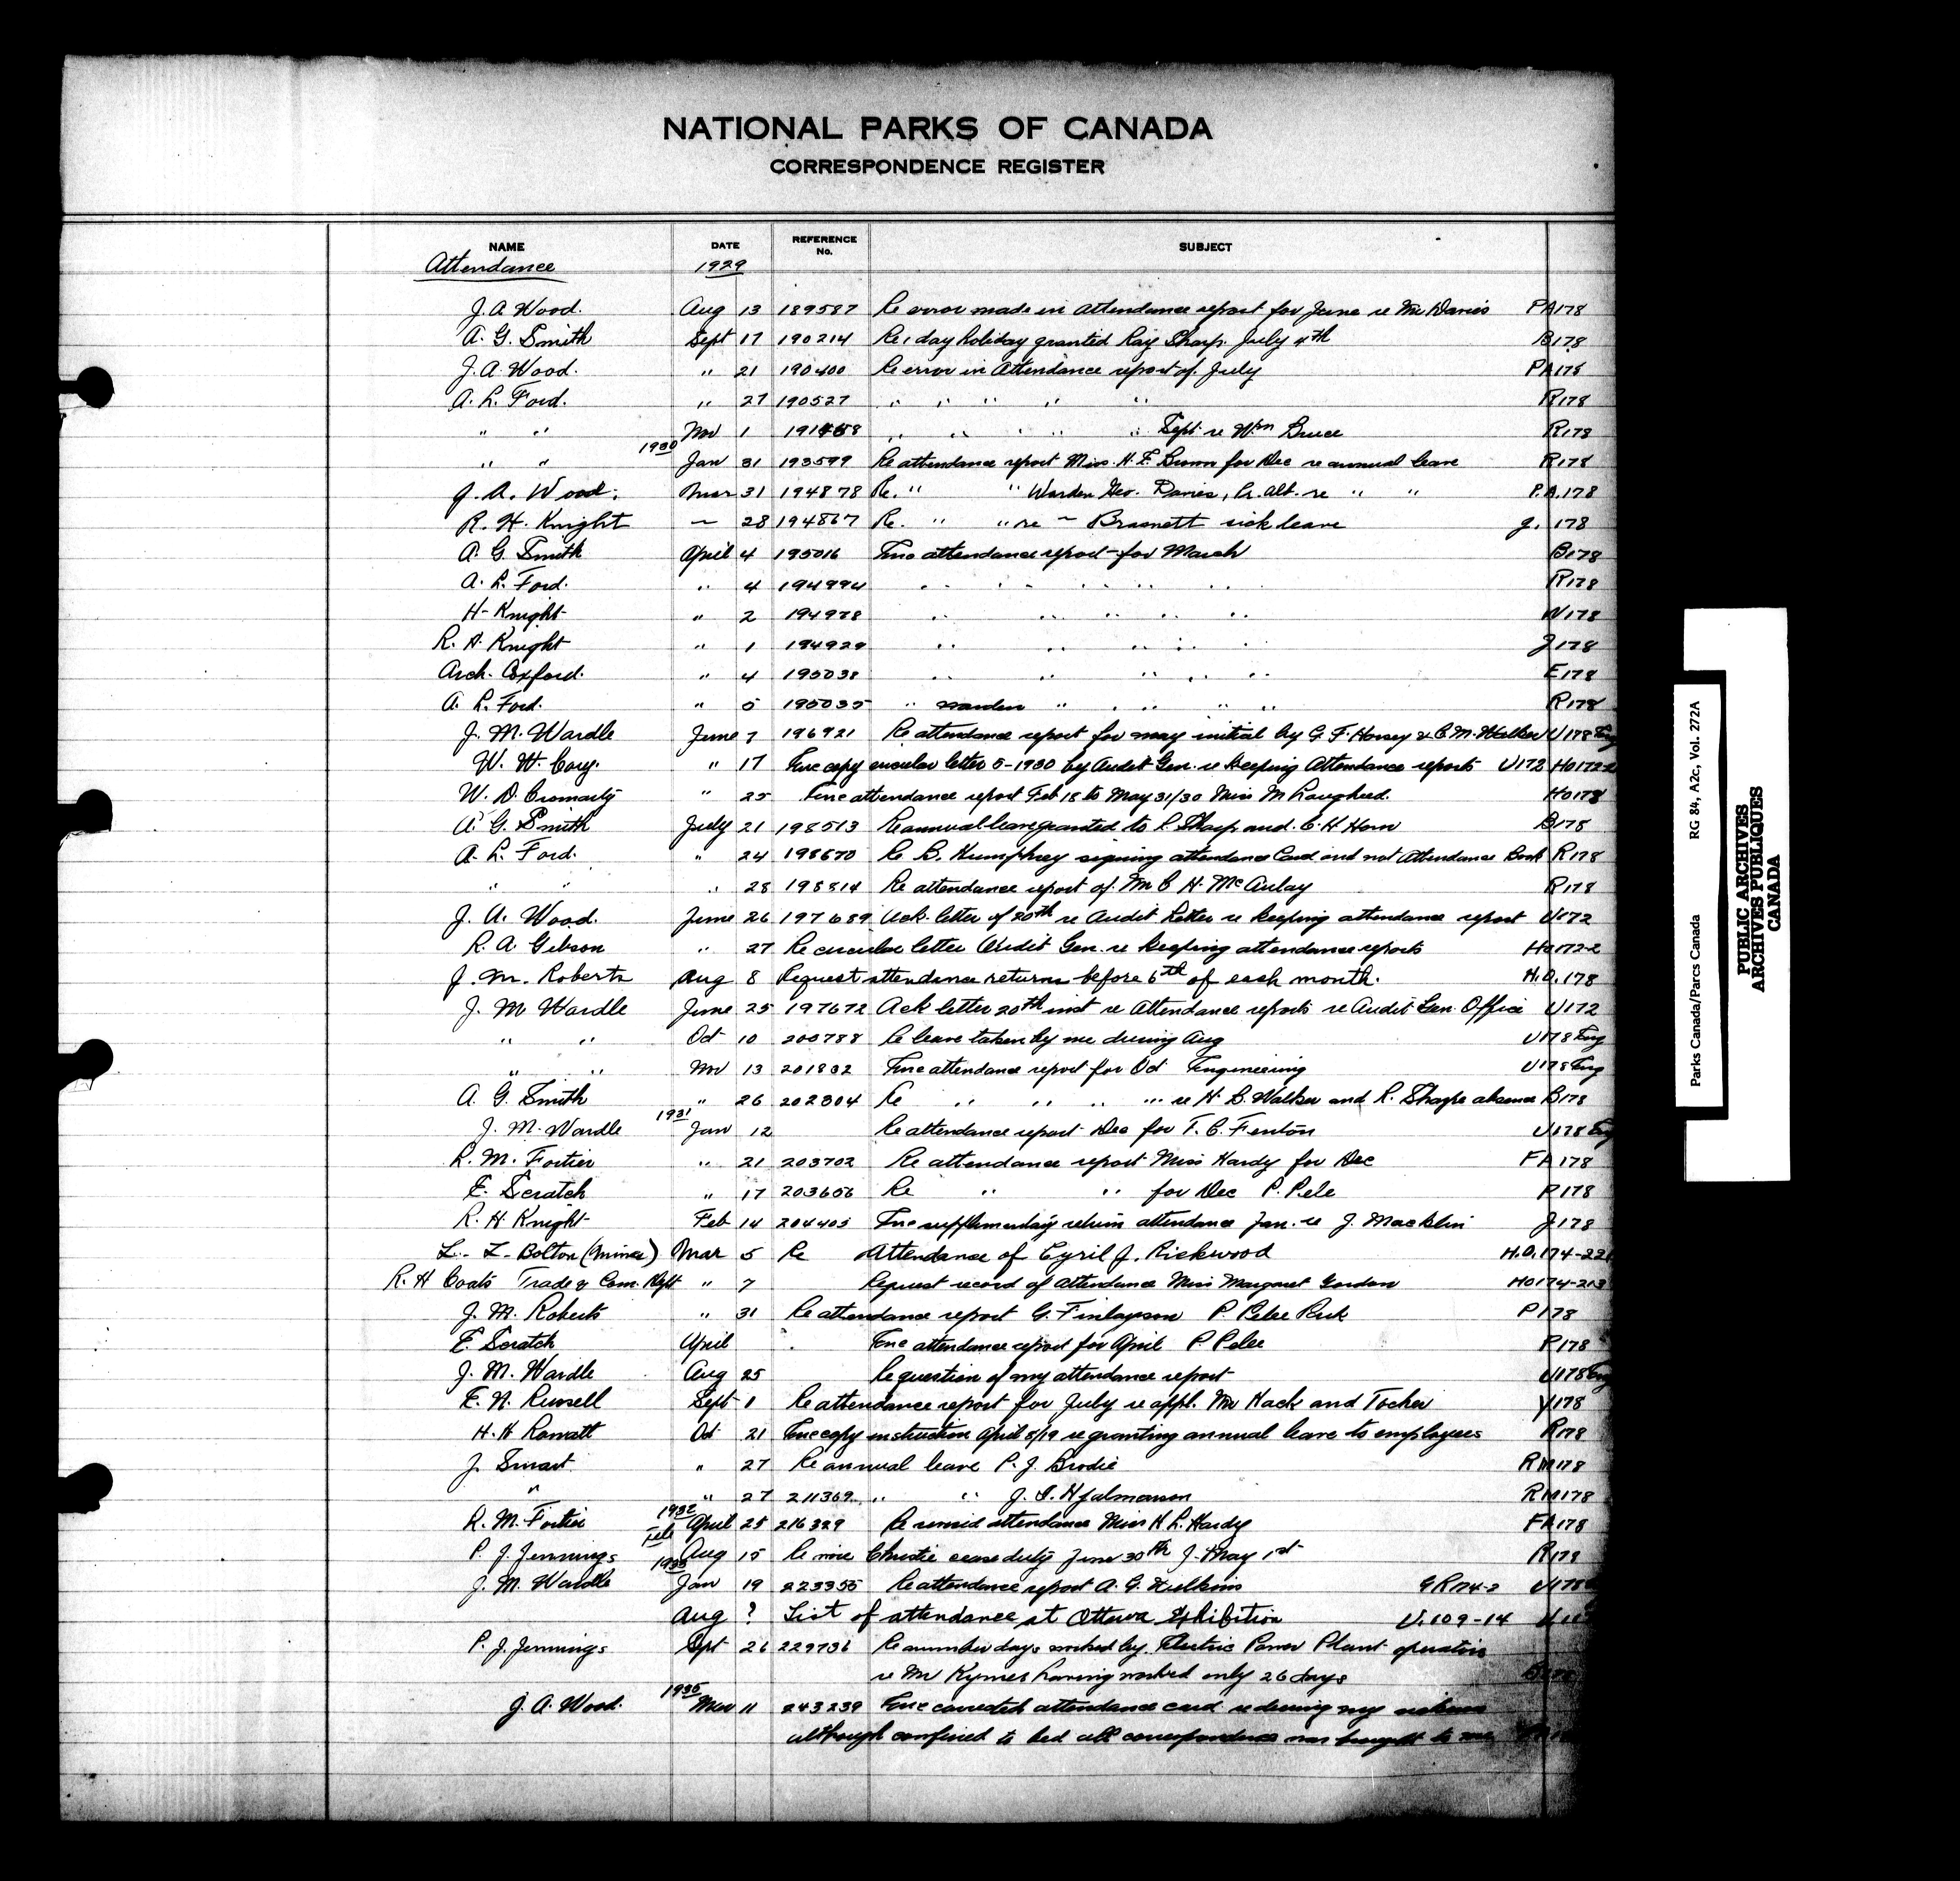 NATIONAL PARKS OF CANADA
CORRESPONDENCE REGISTER
NAME DATE REFERENCE No. SUBJECT
Attendance 1929
J. A. Wood. Aug 13 189587 Re error made in attendance report for June re Mr Davies PA178
A. G. Smith Sept 17 190214 Re 1 day holiday granted Ray Sharp July 4th B178
J. A. Wood. " 21 190400 Re error in Attendance report of July PA178
A. L. Ford. " 27 190527 " " " " " R178
" " Nov 1 " " " " " Sept re Wm Bruce R178
1930
" " Jan 31 193599 Re attendance report Miss H. F. Brown for Dec re annual leave R178
J. A. Wood. Mar 31 194878 Re. " " Warden Geo. Davies, re " " P.A.178
R. H. Knight 28 194867 Re. " " re ~ Brasnett sick leave J. 178
A. G. Smith April 4 195016 Enc attendance report for March B178
A. L. Ford. " 4 194994 " " " " " " R178
H Knight " 2 194978 " " " " " W178
R. H. Knight " 1 194929 " " " " " J178
Arch. Coxford. " 4 195038 " " " " " E178
A. L. Ford. " 5 195035 " warden " " " " " R178
J. M. Wardle June 7 196921 Re attendance report for may initial by G. F. Horsey & C. M. Walker U178 Eng
W. W. Cory. " 17 Enc copy circular letter 5-1930 by Audit Gen. re keeping Attendance reports U172 HO172-2
W. D. Cromarty " 25 Enc attendance report Feb 18 to May 31/30 Miss M Lougheed. HO178
A. G. Smith July 21 198513 Re annual leave granted to R. Sharp and C. H Horn B178
A. L. Ford. " 24 198670 Re B. Humphrey signing attendance Card and not Attendance Book R178
" " " 28 198814 Re attendance report of Mr C H. McAulay R178
J. A. Wood. June 26 197689 Ack. letter of 20th re Audit Letter re keeping attendance report U172
R. A. Gibson " 27 Re circular letter Audit Gen. re keeping attendance reports HO172-2
J. M. Roberts Aug 8 Request attendance returns before 6th of each month. H.O.178
J. M Wardle June 25 197672 Ack letter 20th inst re Attendance reports re Audit Gen. Office U172
" " Oct 10 200788 Re leave taken by me during Aug U178 Eng
" " Nov 13 201832 Enc attendance report for Oct Engineering U178 Eng
A. G. Smith " 26 202304 Re " " " " re H. B. Walker and R. Sharpe absence B178
1931
J. M. Wardle Jan 12 Re attendance report Dec for T. C. Fenton U178 Eng
R. M. Fortier " 21 203702 Re attendance report Miss Hardy for Dec FA178
E. Scratch " 17 203656 Re " " for Dec P. Pele P178
R. H. Knight Feb 14 204405 Enc supplementary return attendance Jan. re J. Macklin J178
L. L. Bolton (Mines) Mar 5 Re Attendance of Cyril J. Rickwood H.O.174-221
R. H Coats Trade & Com. Dept " 7 Request record of Attendance Miss Margaret Gordon HO174-213
J. M. Roberts " 31 Re attendance report G. Finlayson P. Pelee Park P178
E. Scratch April Enc attendance report for April P Pelee P178
J. M. Wardle Aug 25 Re question of my attendance report U178 Eng
E. N. Russell Sept 1 Re attendance report for July re appl. Mr Hack and Tocher Y178
H. H Rowatt Oct 21 Enc copy instruction April 8/19 re granting annual leave to employees R178
J. Smart " 27 Re annual leave P. J. Brodie RM178
" " 27 211369 " " J. I. Hjalmarson RM178
1932
R. M. Fortier April 25 216329 Re revised attendance Miss H L. Hardy FA178
Feb
P. J. Jennings Aug 15 Re Christie cease duty June 30th J. May 1st R178
J. M. Wardle Jan 19 223355 Re attendance report A. G. GR174-2 U178
Aug ? List of attendance at Ottawa Exhibition U.109-14
P. J. Jennings Sept 26 229736 Re number days worked by Electric Power Plant operators
re Mr Kymes having worked only 26 days
1935
J. A. Wood. Mar 11 243239 Enc corrected attendance card re during my sickness
although confined to bed all correspondence was brought to me
Parks Canada/Parcs Canada RG 84, A2c, Vol. 272A
PUBLIC ARCHIVES
ARCHIVES PUBLIQUES
CANADA